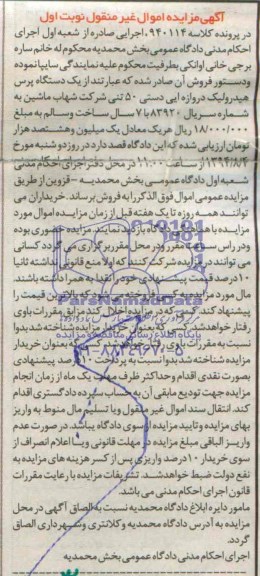 آگهی مزایده اموال غیر منقول نوبت اول
در پرونده کلاسه ۹۴۰۱۱۴ اجرایی صادره از شعبه اول اجرای
احکام مدنی دادگاه عمومی بخش محمدیه محکوم له خانم ساره
برجی خانی اوانکی بطرفیت محکوم علیه نمایندگی سایپا نموده
ودستور فروش آن صادر شده که عبارتند از یک دستگاه پرس
هیدرولیک دروازه ایی دستی ۵۰ تنی شرکت شهاب ماشین به
شماره سریال ۸۳۹۲۰ با ۷ سال ساخت وسالم به مبلغ
۱۸/۰۰۰/۰۰۰ ریال هریک معادل یک میلیون وهشتصد هزار
تومان ارزیابی شده که این دادگاه قصد دارد در روز دو شنبه مورخ
۱۳۹۴/۸/۴ از ساعت ۱۱:۰۰ در محل دفتر اجرای احکام مدنی
شعبه اول دادگاه عمومی بخش محمدیه - قزوین از طریق
مزایده عمومی اموال فوق الذکر را به فروش برساند. خریداران می
توانند همه روزه تا یک هفته قبل از زمان مزایده اموال مورد
مزایده با بازدید نمایند. مزایده حضوری بوده
ودر راس ساعت مقرر ودر محل مقرر برگزاری می گردد کسانی
می توانند در مزایده شرکت کنند که اولا منع قانونی نداشته ثانیا
۱۰ درصد قیمت پیشنهادی خود را نقدا به همراه داشته باشند.
مال مورد مزایده به کسی که قیمت را
پیشنهاد کند. مقررات باوی
رفتار خواهدشد. خریدار مزایده شناخته شد بدوا
نسبت به مقررات باوی رفتار خواهد شد. کسی که بعنوان خریدار
مزایده شناخته شد بدوا نسبت به پرداخت ۱۰ درصد پیشنهادی
بصورت نقدی اقدام وحداکثر ظرف مهلت یک ماه از زمان انجام
مزایده جهت تودیع مابقی آن به حساب سپرده دادگستری اقدام
کند. انتقال سند اموال غیر منقول ویا تسلیم مال منوط به واریز
بهای مزایده و تایید مزایده از سوی دادگاه میباشد. در صورت عدم
واریز الباقی مبلغ مزایده در مهلت قانونی ویا اعلام انصراف از
سوی خریدار ۱۰ درصد واریزی پس از کسر هزینه های مزایده به
نفع دولت ضبط خواهدشد. تشریفات مزایده با رعایت مقررات
قانون اجرای احکام مدنی می باشد.
مامور دایره ابلاغ دادگاه محمدیه نسبت به الصاق آگهی در محل
مزایده به آدرس دادگاه محمدیه و کلانتری وشهرداری الصاق
گردد.
اجرای احکام مدنی دادگاه عمومی بخش محمدیه
ParsNamadData
۰۲۱-۸۸۳۴۹۶۷۰-۵